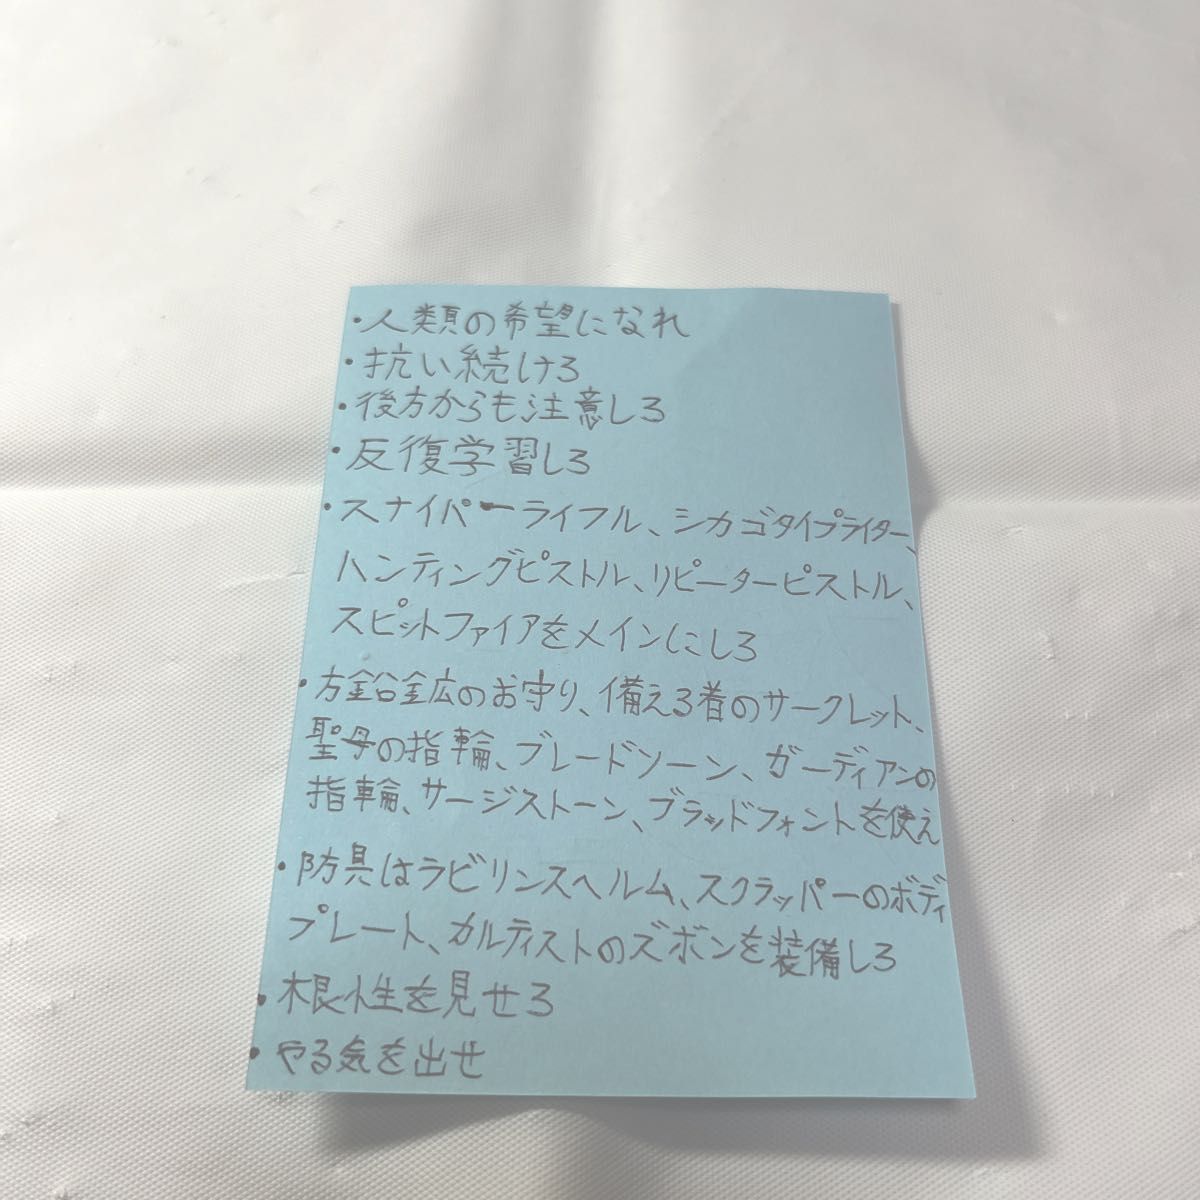 ・人類の希望になれ
・抗い続けろ
・後方からも注意しろ
・反復学習しろ
・スナイパーライフル、シカゴタイプライター、
ハンティングピストル、リピーターピストル、
スピットファイアをメインにしろ
・方鉛鉱のお守り、備える着のサークレット、
聖母の指輪、ブレードソーン、ガーディアンの
指輪、サージストーン、ブラッドフォントを使え
・防具はラビリンスヘルム、スクラッパーのボディ
プレート、カルティストのズボンを装備しろ
・根性を見せろ
・やる気を出せ